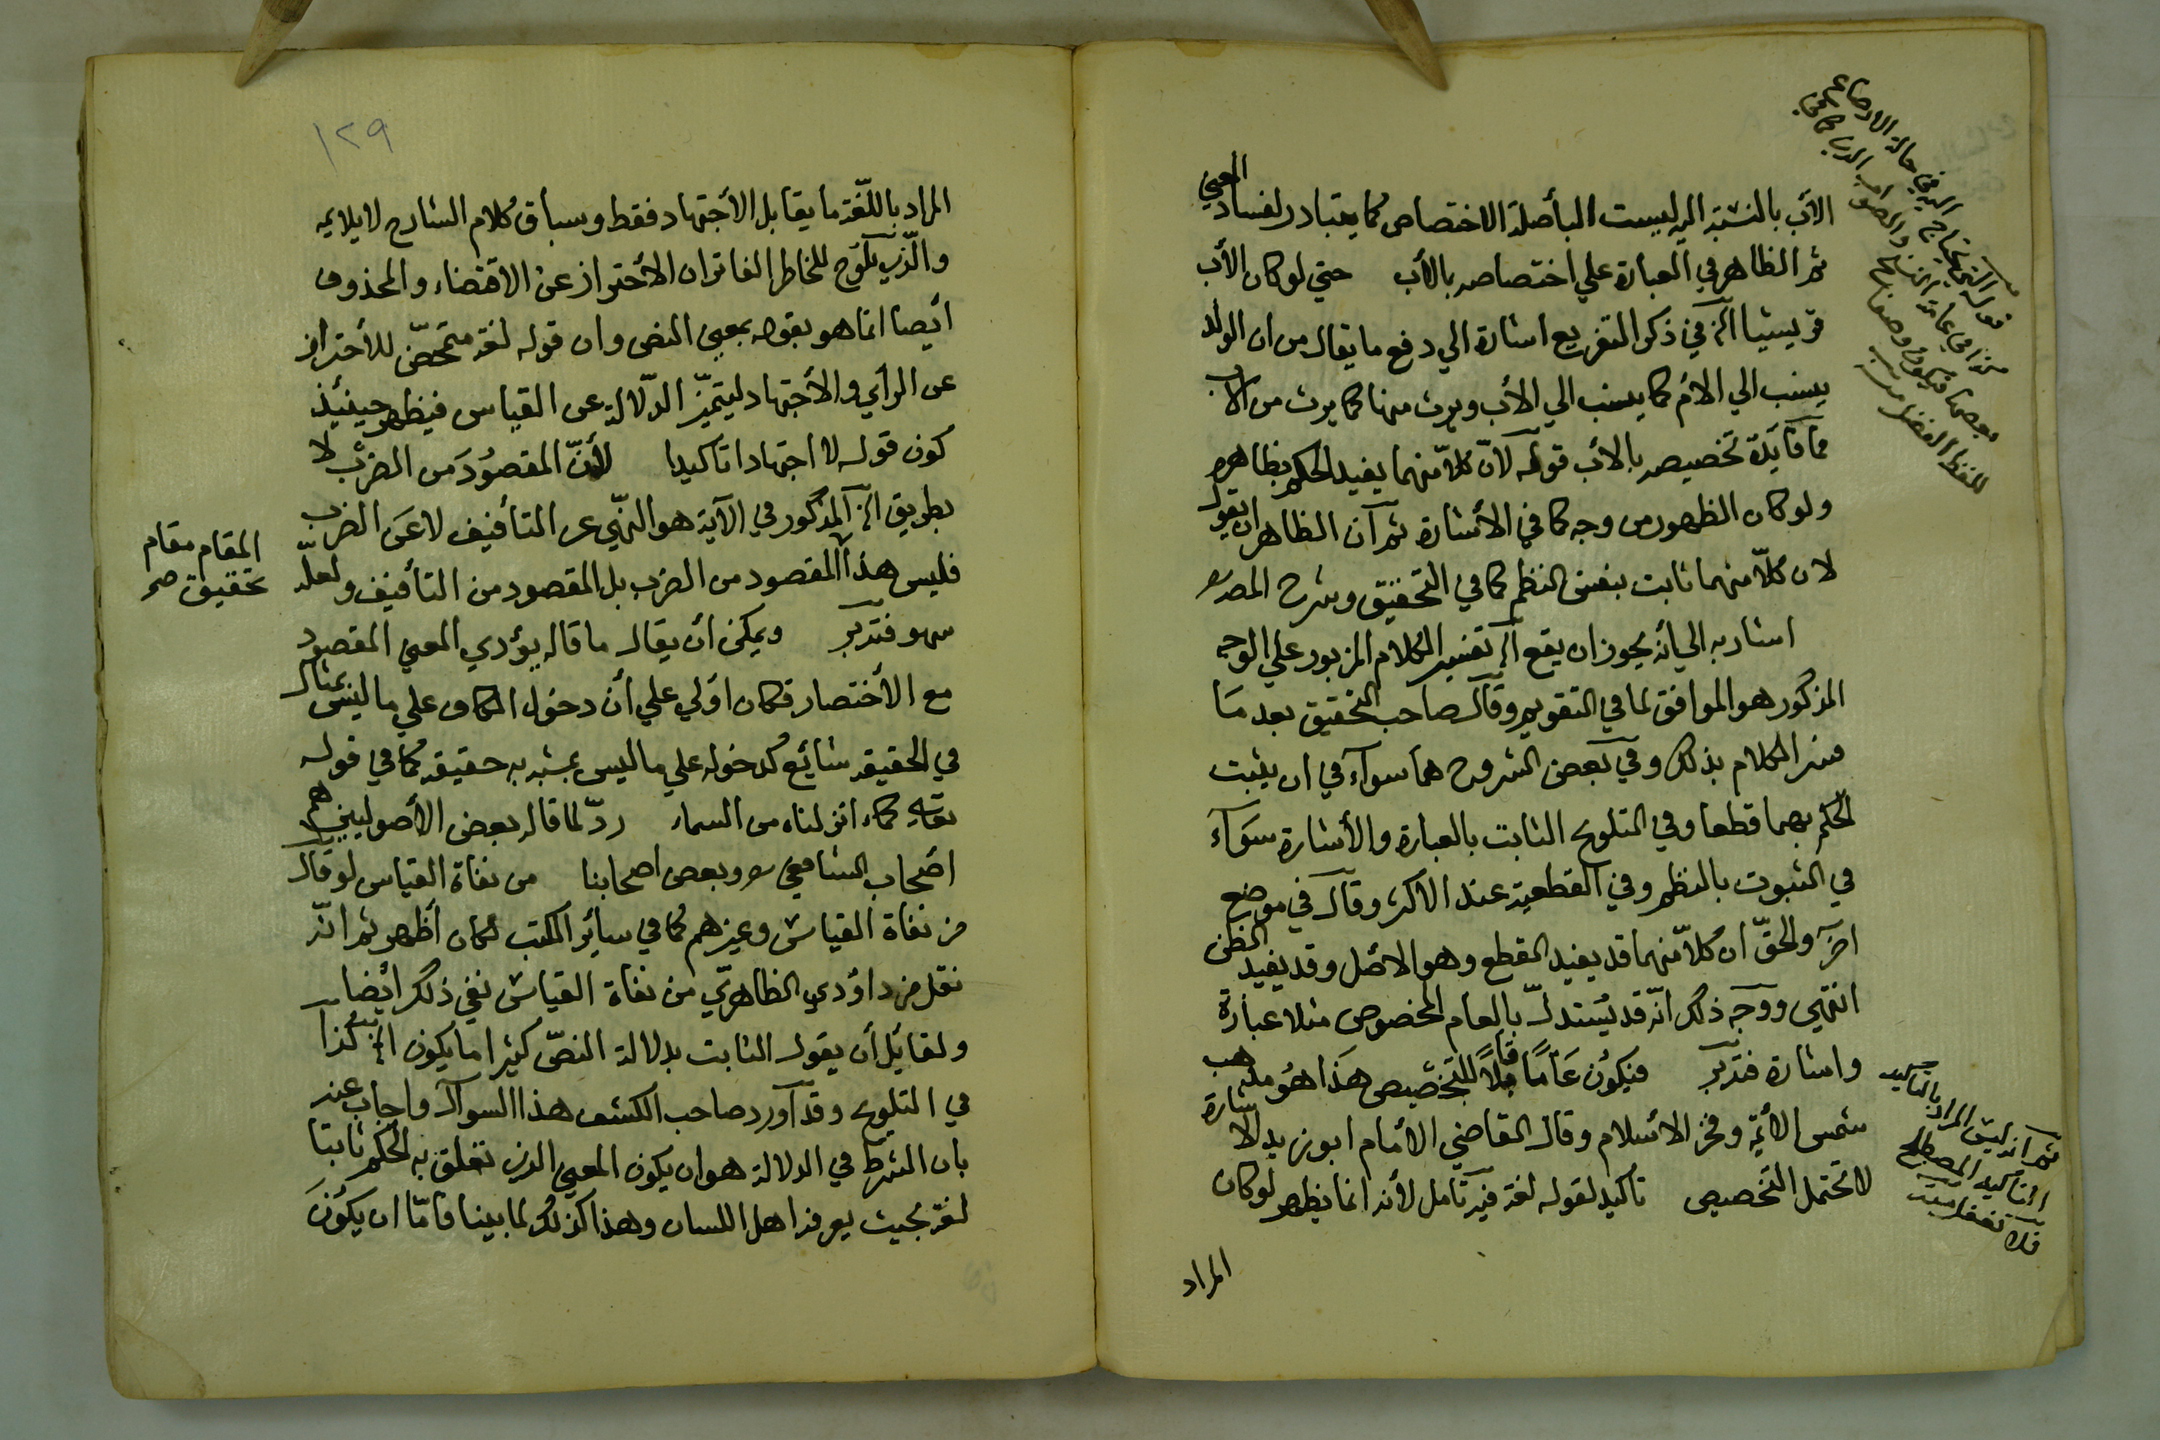 الأب بالنسبة اليه ليست البأصلة الاختصاص كما يتبادر لفساد المعني
ثم الظاهر في العبارة علي اختصاصه بالأب حتي لوكان الأب
قريشيا الخ في ذكر التفريع اشارة الي دفع ما يقال من ان الولد
ينسب الي الأم كما ينسب الي الأب ويرث منها كما يرث من الأب
فما فايدة تخصيصه بالأب قوله لأن كلّا منهما يفيد الحكم بظاهره
ولو كان الظهور من وجه كما في الأشارة ثم ان الظاهر ان يقول
لان كلّا منهما ثابت بنفس النظم كما في التحقيق وشرح المصر
اشار به الي انه يجوز ان يقع الخ تفسير الكلام المزبور علي الوجه
المذكور هو الموافق لما في التقويم وقال صاحب التحقيق بعد ما
فسر الكلام بذلك وفي بعض الشروح هما سوآء في ان يثبت
الحكم بهما قطعا وفي التلويح الثابت بالعبارة والأشارة سوآء
في الثبوت بالنظم وفي القطعية عند الاكثر وقال في موضع
اخر والحقّ ان كلّا منهما قد يفيد القطع وهو الاصل وقد يفيد الظن
انتهي ووجه ذلك انّه قد يستدلّ بالعام المخصوص مثلا عبارة
واشارة فتدبر فيكون عامّا قابلا للتخصيص هذا هو مذهب
شمس الأئمة وفخر الاسلام وقال القاضي الأمام ابو زيد الاشارة
لا تحتمل التخصيص تأكيد لقوله لغة فيه تامل لأنه انما يظهر لوكان
المراد
ثم انه ليس المراد بالتأكيد
التأكيد المصطلح
فلا تغفل منه
١٢٩
المراد باللّغة ما يقابل الأجتهاد فقط وسباق كلام الشارح لا يلايمه
والّذي يلوح للخاطر الفاتر ان الأحتراز عن الاقتضاء والمحذوف
أيضا انما هو بقوله بمعني النص وان قوله لغة متمحّض للأحتراز
عن الرأي والأجتهاد ليتميّز الدّلالة عن القياس فيظهر حينئذ
كون قوله لا اجتهادا تاكيدا لأنّ المقصود من الضرب لا
بطريق الخ المذكور في الآية هو النهي عن التأفيف لا عن الضرب
فليس هذا المقصود من الضرب بل المقصود من التأفيف ولعلّه
سهو فتدبر ويمكن أن يقال ما قاله يؤدي المعني المقصود
مع الأختصار فكان اولي علي أن دخول الكاف علي ما ليس بمثال
في الحقيقة شائع كدخوله علي ما ليس بمشبه به حقيقة كما في قوله
تعالي كماء انزلناه من السماء ردّ لما قاله بعض الأصوليين هم
اصحاب الشافعي وبعض اصحابنا من نفاة القياس لو قال
من نفاة القياس وغيرهم كما في سائر الكتب لكان أظهر ثم انّه
نقل من داؤدي الظاهريّ من نفاة القياس نفي ذلك ايضا
ولقائل أن يقول الثابت بدلالة النصّ كثيرا ما يكون الخ كذا
في التلويح وقد أورد صاحب الكشف هذا السوال واجاب عنه
بان الشرط في الدلالة هو ان يكون المعني الذي تعلق به الحكم ثابتا
لغة بحيث يعرفه اهل اللسان وهذا كذلك لما بينا فامّا ان يكون
المقام مقام
تحقيق صح